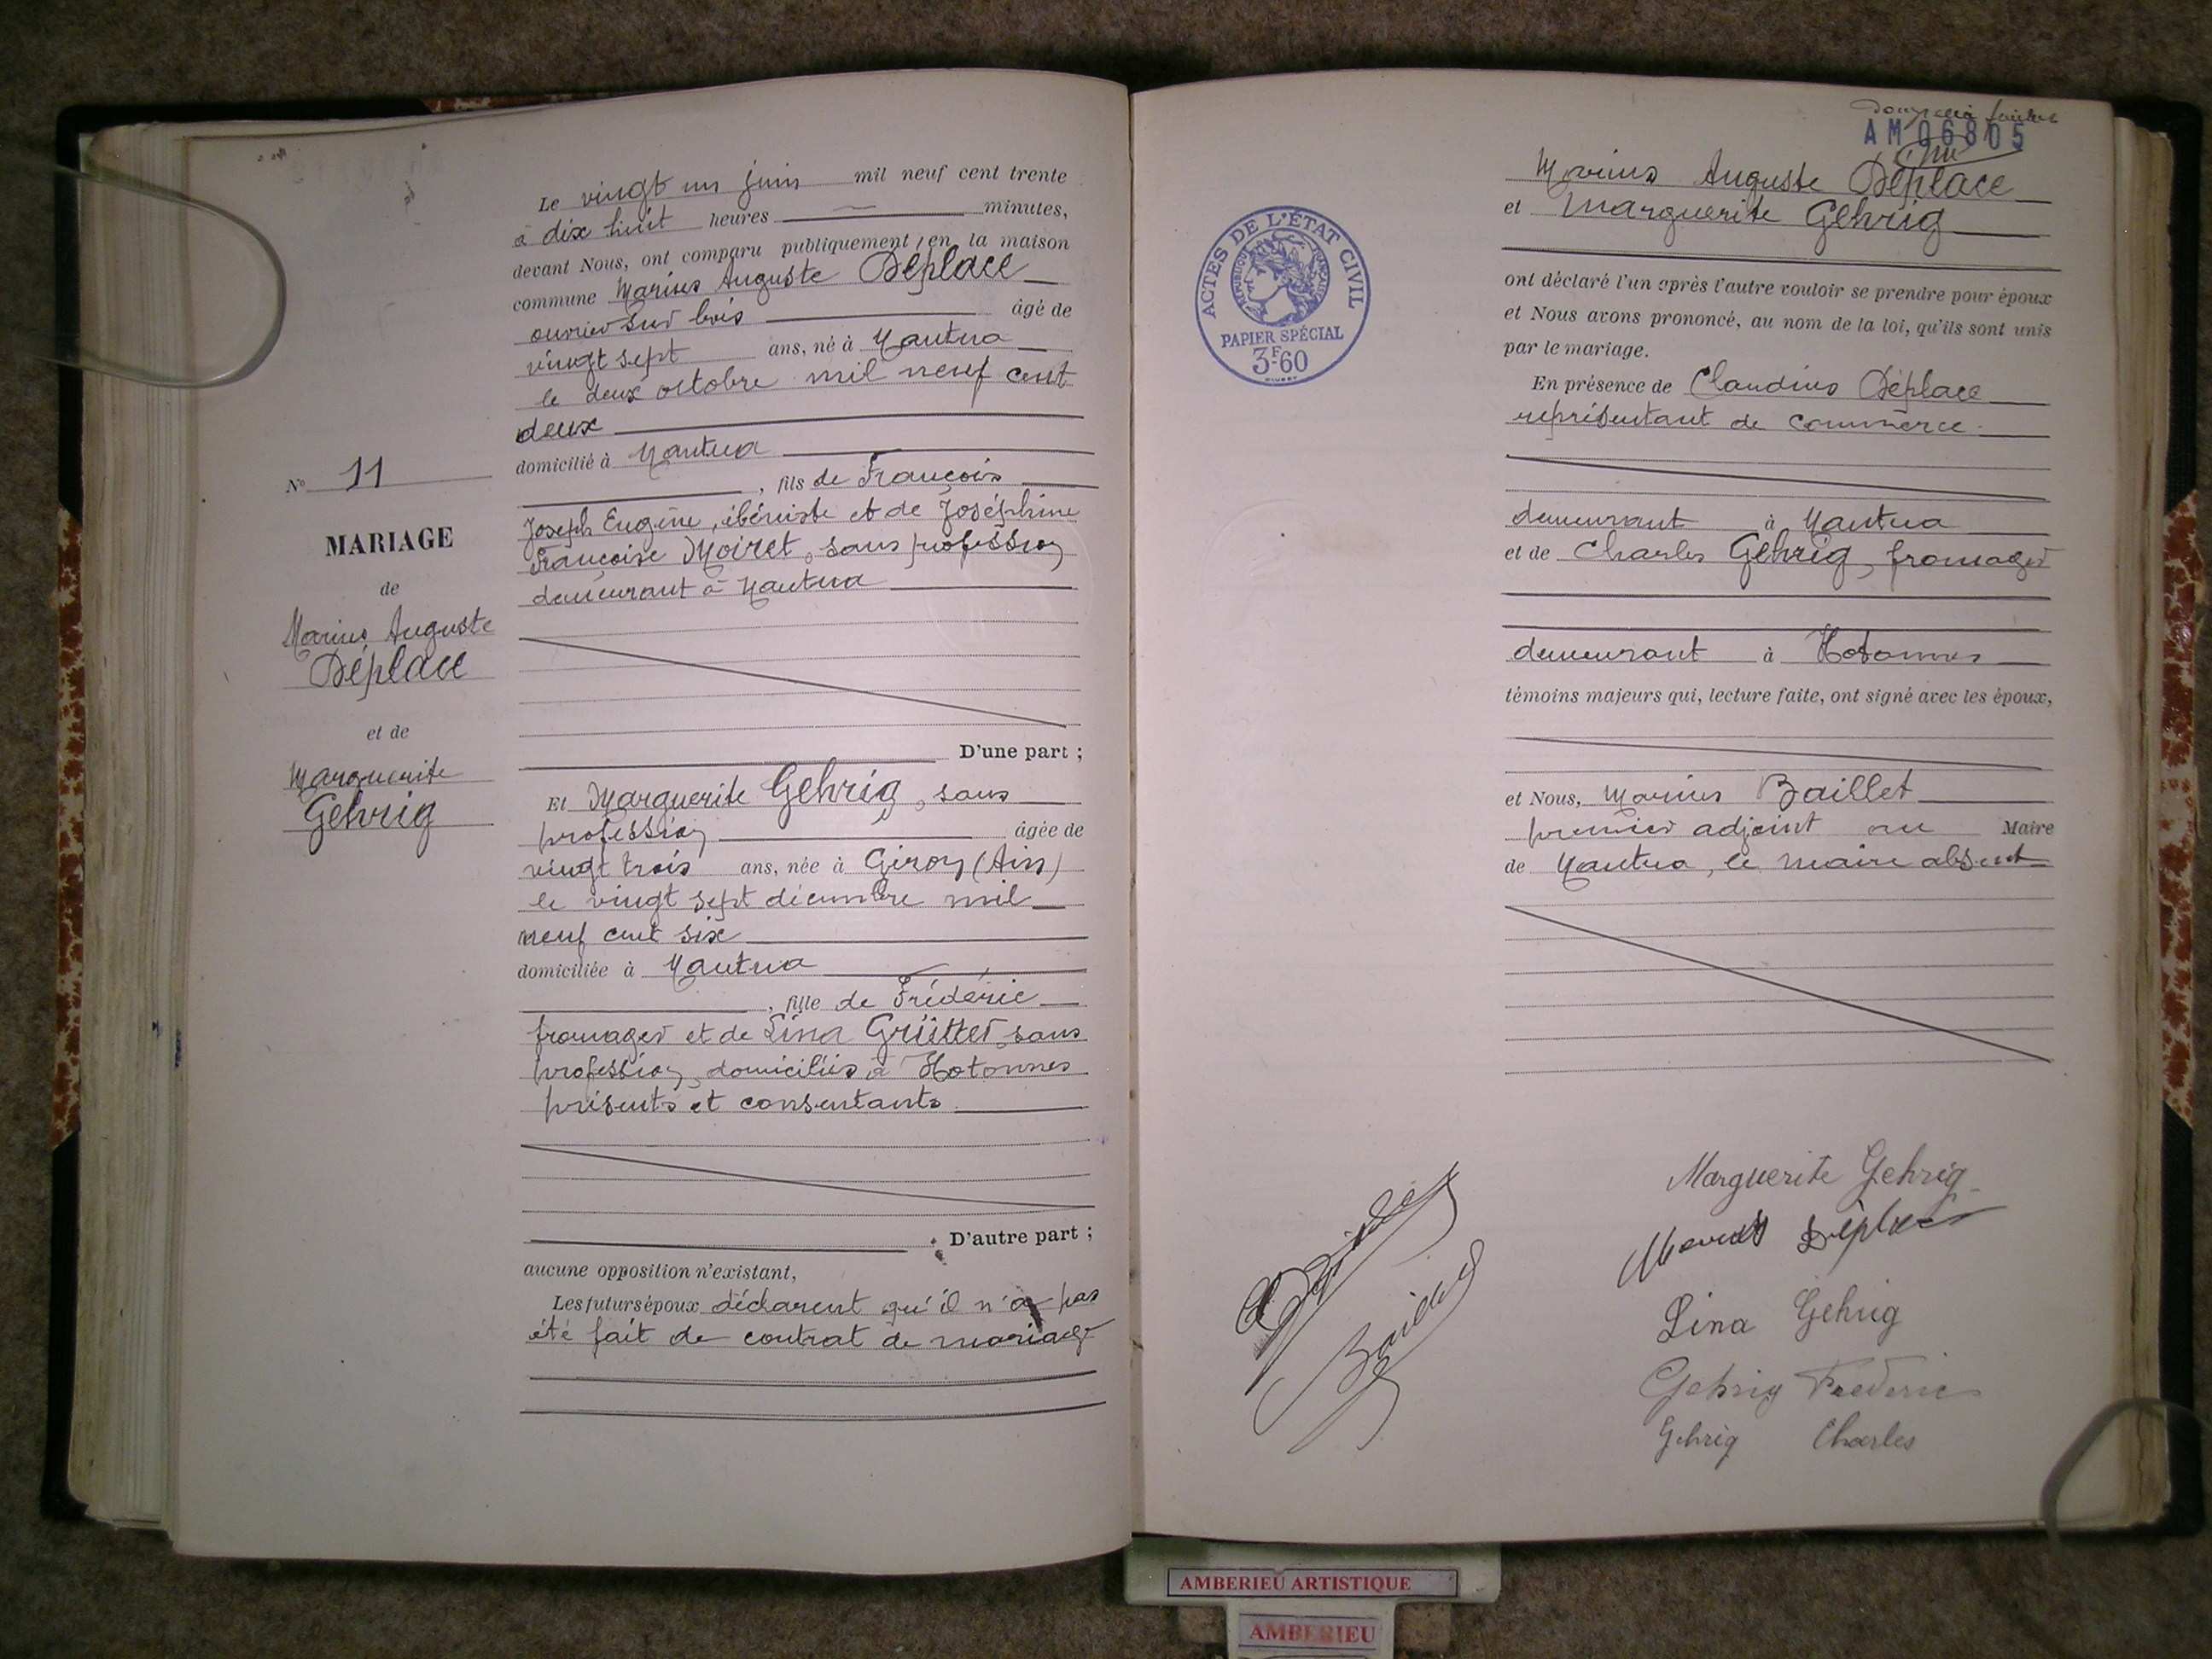 N° 11
MARIAGE
de
Marius Auguste
Déplace
et de
Marguerite
Gehrig
Le vingt un juin mil neuf cent trente
à dix huit heures minutes,
devant Nous, ont comparu publiquement, en la maison
commune Marius Auguste Déplace
ouvrier sur bois âgé de
vingt sept ans, né à Nantua
le deux octobre mil neuf cent
deux
domicilié à Nantua
, fils de François
Joseph Eugène, ébéniste et de Joséphine
Françoise Moiret, sans profession
demeurant à Nantua
D'une part ;
Et Marguerite Gehrig, sans
profession âgée de
vingt trois ans, née à Giron (Ain)
le vingt sept décembre mil
neuf cent six
domiciliée à Nantua
, fille de Frédéric
fromager et de Lina Grütter, sans
profession, domiciliés à Hotonnes
présents et consentants.
D'autre part ;
aucune opposition n'existant,
Les futurs époux déclarent qu'il n'a pas
été fait de contrat de mariage
AM 06805
Marius Auguste Déplace
et Marguerite Gehrig
ACTES DE L'ÉTAT CIVIL
RÉPUBLIQUE FRANÇAISE
PAPIER SPÉCIAL
3F60
ont déclaré l'un après l'autre vouloir se prendre pour époux
et Nous avons prononcé, au nom de la loi, qu'ils sont unis
par le mariage.
En présence de Claudius Déplace
représentant de commerce
demeurant à Nantua
et de Charles Gehrig, fromager
demeurant à Hotonnes
témoins majeurs qui, lecture faite, ont signé avec les époux,
et Nous, Marius Baillet
premier adjoint au Maire
de Nantua, le maire absent
Marguerite Gehrig
Marius Déplace
Lina Gehrig
Gehrig Frederic
Gehrig Charles
Baillet
AMBERIEU ARTISTIQUE
AMBERIEU